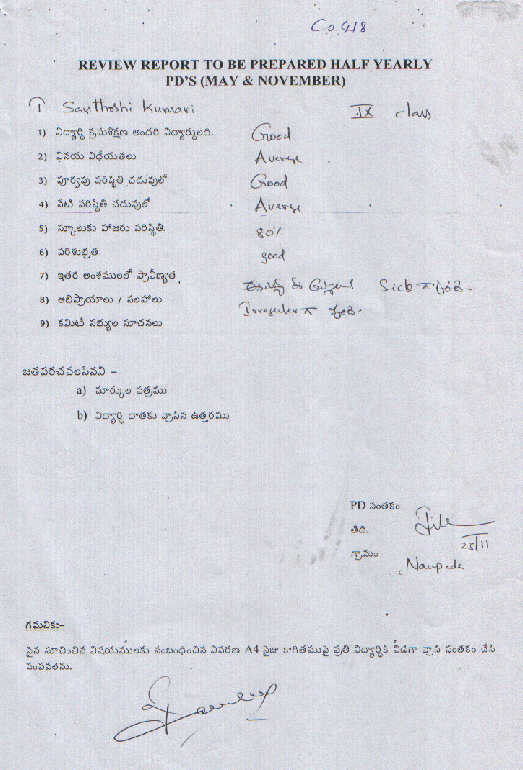 C.O.918
REVIEW REPORT TO BE PREPARED HALF YEARLY
PD'S (MAY & NOVEMBER)
T Santhoshi Kumari IX class
1) విద్యార్థి క్రమశిక్షణ అందరి విద్యార్థులలో. Good
2) వినయ విధేయతలు Average
3) పూర్వపు పరిస్థితి చదువులో Good
4) నేటి పరిస్థితి చదువులో Average
5) స్కూలుకు హాజరు పరిస్థితి. 80%
6) పరిశుభ్రత good
7) ఇతర అంశములలో ప్రావీణ్యత
8) అభిప్రాయాలు / సలహాలు
9) కమిటీ సభ్యుల సూచనలు
జతపరచవలసినవి –
a) మార్కుల పత్రము
b) విద్యార్థి దాతకు వ్రాసిన ఉత్తరము
PD సంతకం
తేది. 25/11
గ్రామం Naupada
గమనిక:-
పైన సూచించిన విషయములకు సంబంధించిన వివరణ A4 సైజు కాగితముపై ప్రతి విద్యార్థికి విడిగా వ్రాసి సంతకం చేసి
పంపవలెను.